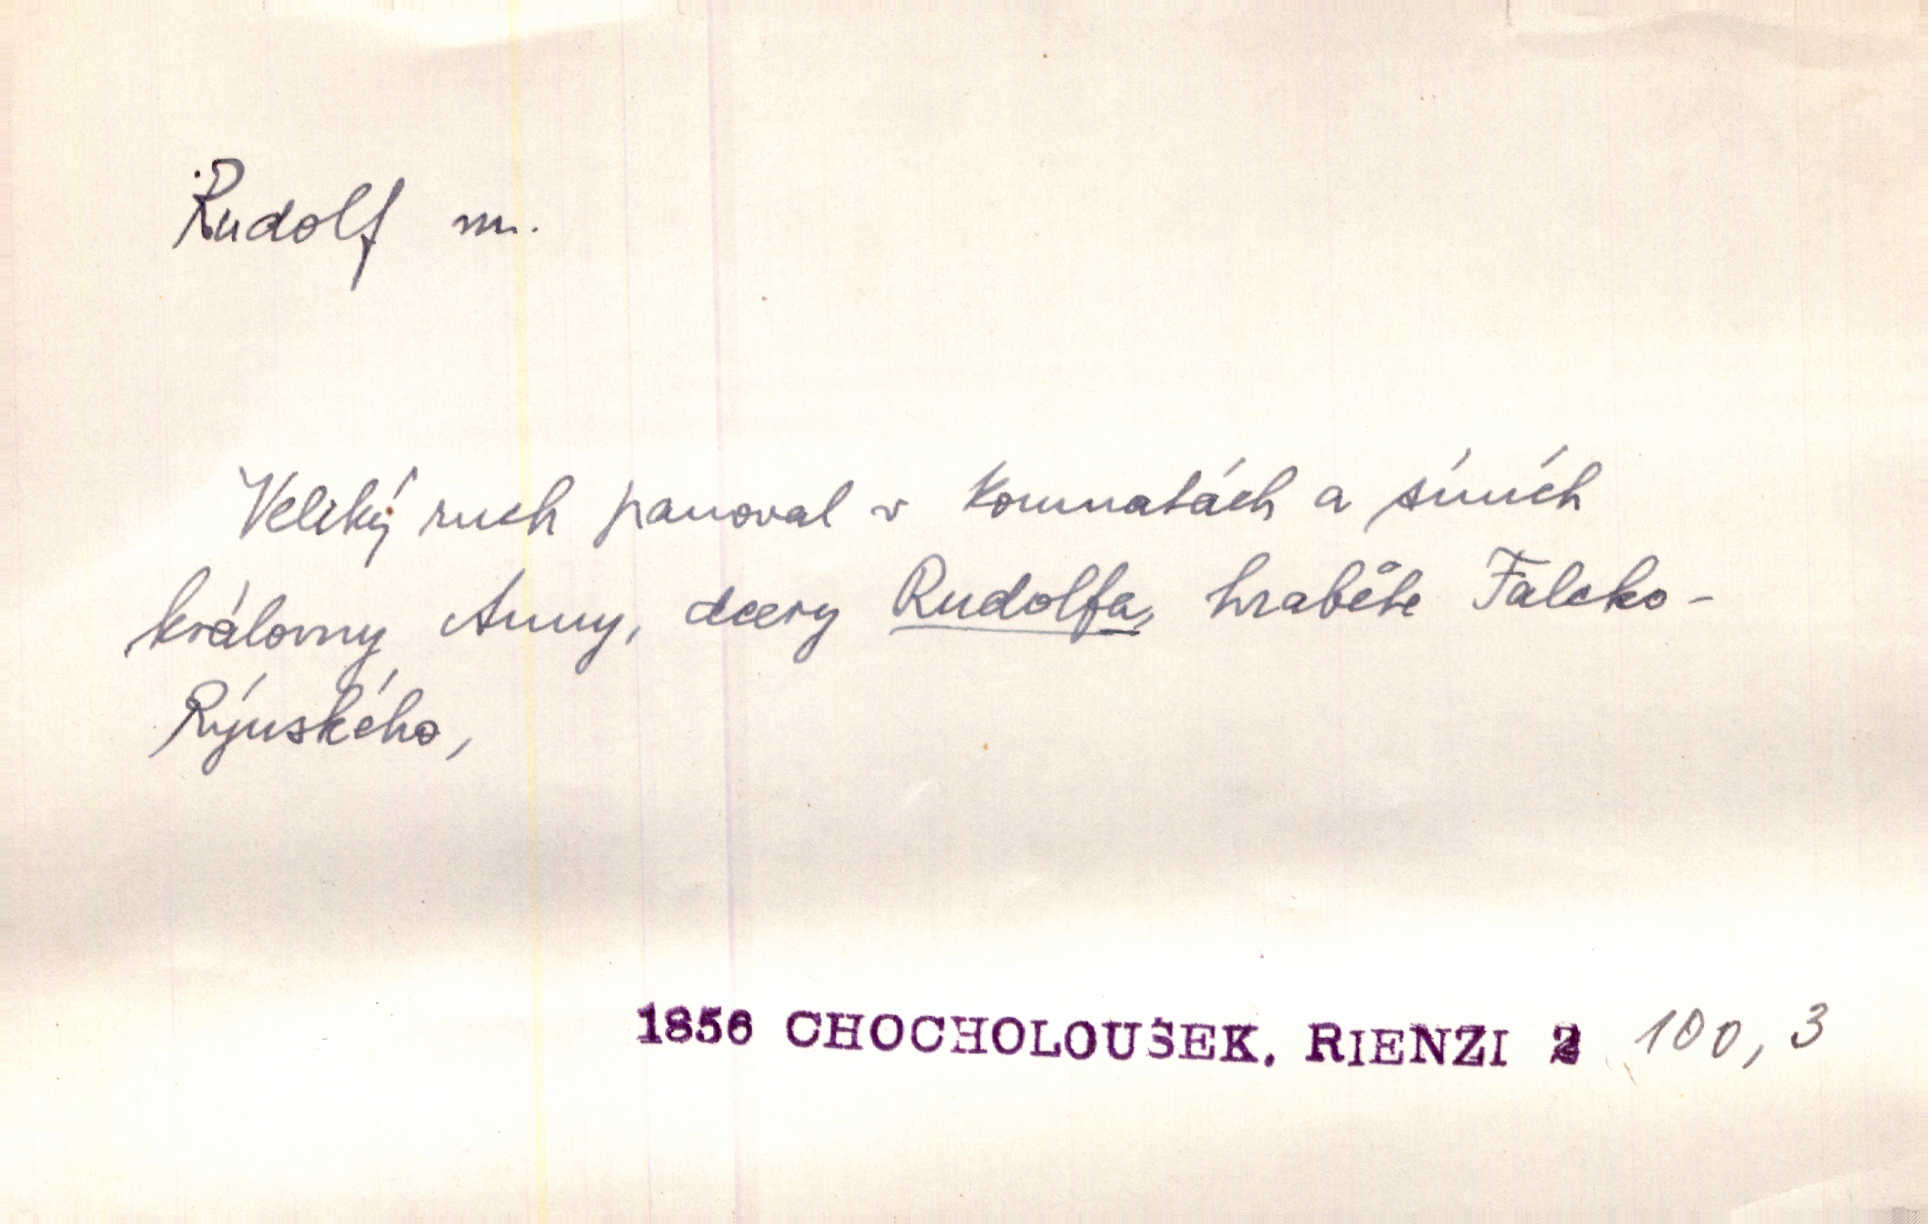 Rudolf m.
Veliký ruch panoval v komnatách a síních
královny Anny, dcery Rudolfa, hraběte Falcko-
Rýnského,
1856 CHOCHOLOUŠEK. RIENZI 2 100, 3